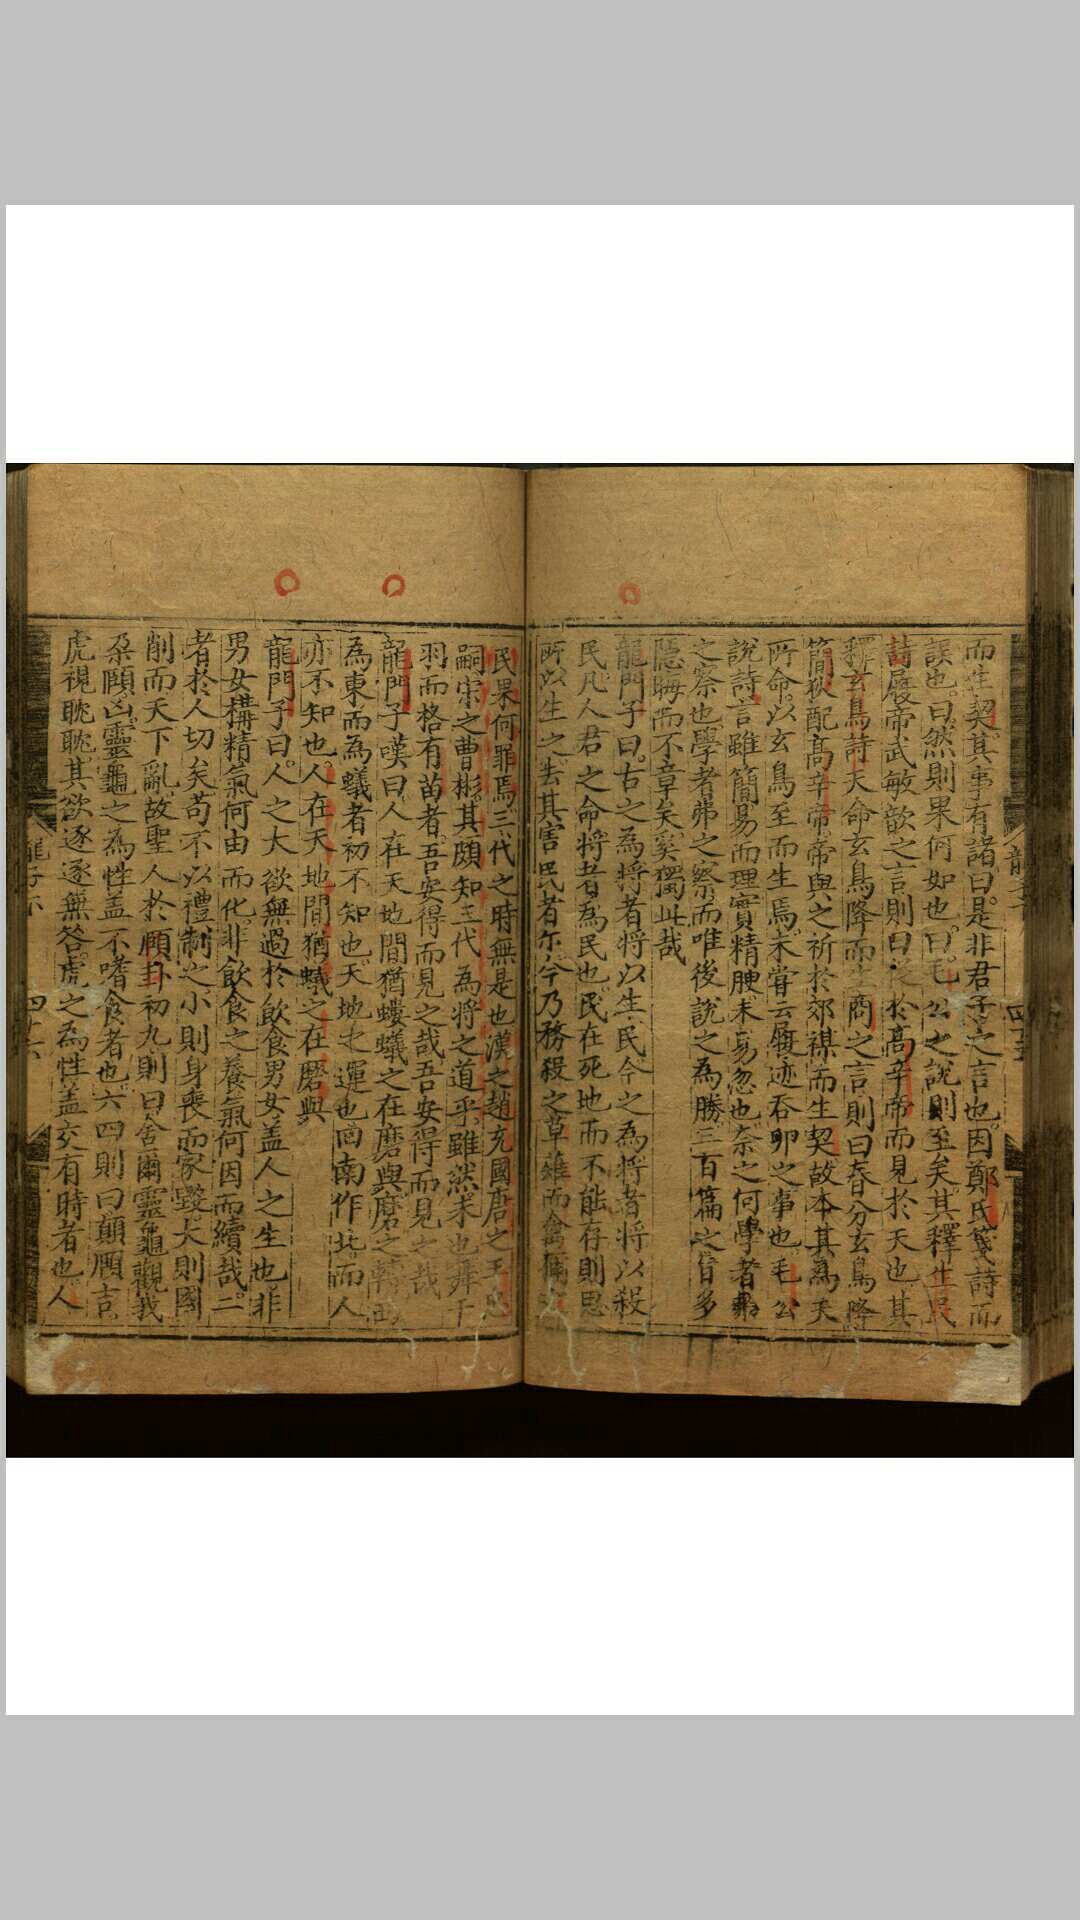 而生契其事有諸曰是非君子之言也因鄭氏箋詩而
誤也曰然則果何如也曰毛公之說則至矣其釋生民
詩履帝武敏歆之言則曰從於高辛帝而見於天也其
釋玄鳥詩天命玄鳥降而生商之言則曰春分玄鳥降
簡狄配高辛帝帝與之祈於郊禖而生契故本其為天
所命以玄鳥至而生焉未甞云履迹吞卵之事也毛公
說詩言雖簡易而理實精腴未易忽也奈之何學者弗
之察也學者弗之察而唯後說之為勝三百篇之旨多
隱晦而不章矣奚獨此哉
龍門子曰古之為將者將以生民今之為將者將以殺
民凡人君之命將者為民也民在死地而不能存則思
所以生之去其害民者尓今乃務殺之草薙而禽獮之
民果何罪焉三代之時無是也漢之趙充國唐之王忠
嗣宋之曹彬其頗知三代為將之道乎雖然未也舞干
羽而格有苗者吾安得而見之哉吾安得而見之哉
龍門子嘆曰人在天地間猶螻蟻之在磨與磨之轉西
為東而為蟻者初不知也天地之運也回南作北而人
亦不知也人在天地間猶蟻之在磨與
龍門子曰人之大欲無過於飲食男女盖人之生也非
男女搆精氣何由而化非飲食之養氣何因而續哉二
者於人切矣苟不以禮制之小則身喪而家毀大則國
削而天下亂故聖人於頤卦初九則曰舍爾靈龜觀我
朶頤凶靈龜之為性盖不嗜食者也六四則曰顛頤吉
虎視眈眈其欲逐逐無咎虎之為性盖交有時者也人
龍子下
四十六